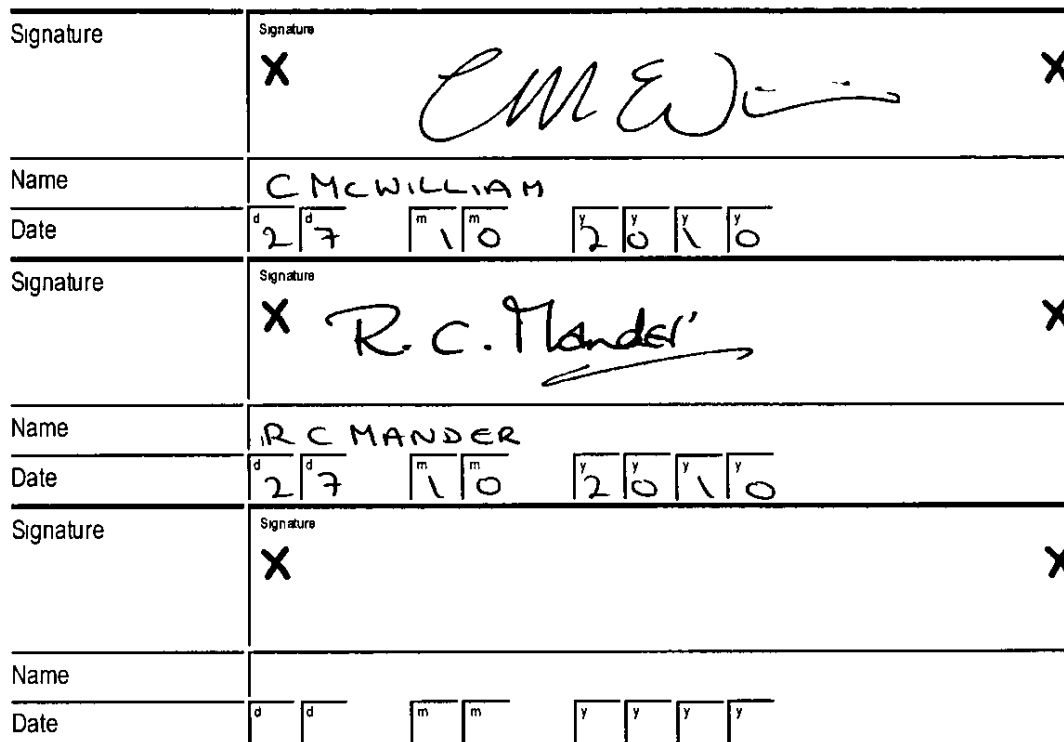 Signature Signature
X X
Name C MCWILLIAM
Date d 2 d 7 m 1 m 0 y 2 y 0 y 1 y 0
Signature Signature
X R. C. Mander X
Name R C MANDER
Date d 2 d 7 m 1 m 0 y 2 y 0 y 1 y 0
Signature Signature
X X
Name
Date d d m m y y y y